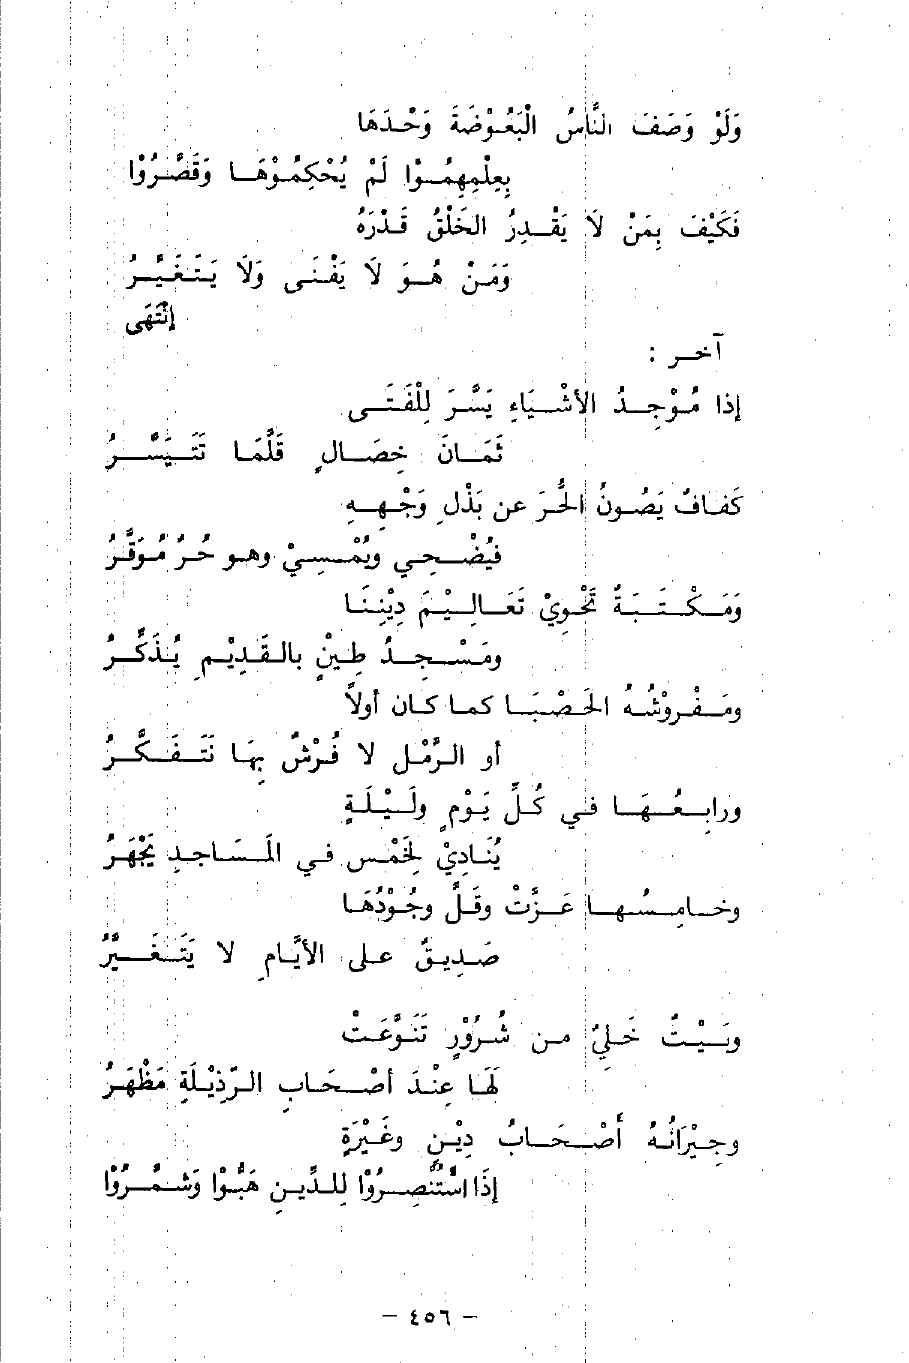 وَلَوْ وَصَفَ النَّاسُ الْبَعُوْضَةَ وَحْدَهَا
بِعِلْمِهِمُوْا لَمْ يُحْكِمُوْهَا وَقَصَّرُوْا
فَكَيْفَ بِمَنْ لاَ يَقْدِرُ الخَلْقُ قَدْرَهُ
وَمَنْ هُوَ لاَ يَفْنَى وَلاَ يَتَغَيَّرُ
إنْتَهَى
آخر :
إذا مُوْجِدُ الأشْيَاءِ يَسَّرَ لِلْفَتَى
ثَمَانَ خِصَالٍ قَلَّمَا تَتَيَسَّرُ
كَفافٌ يَصُونُ الحُرَّ عن بَذْلِ وَجْهِهِ
فيُضْحِي ويُمْسِيْ وهو حُرٌ مُوَقَّرُ
وَمَكْتَبَةٌ تَحْوِيْ تَعَالِيْمَ دِيْنِنَا
ومَسْجِدُ طِينٍ بالقَدِيْمِ يُذَكِّرُ
ومَفْروْشُهُ الحَصْبَا كما كان أولاً
أو الرَّمْلِ لا فُرْشٌ بِهَا نَتَفَكَّرُ
ورابِعُهَا في كُلِّ يَوْمٍ ولَيْلَةٍ
يُنَادِيْ لِخَمْسٍ في المَسَاجِدِ يَجْهَرُ
وخامِسُها عَزَّتْ وقَلَّ وجُوْدُهَا
صَدِيقٌ على الأيَّامِ لا يَتَغَيَّرُ
وبَيْتٌ خَلِيٌ من شُرُوْرٍ تَنَوَّعَتْ
لَهَا عِنْدَ أصْحَابِ الرَّذِيْلَةِ مَظْهَرُ
وجِيْرَانُهُ أَصْحَابُ دِيْنٍ وغَيْرَةٍ
إذَا اسْتُنْصِرُوْا لِلدِّينِ هَبُّوْا وَشَمَّرُوْا
– ٤٥٦ –